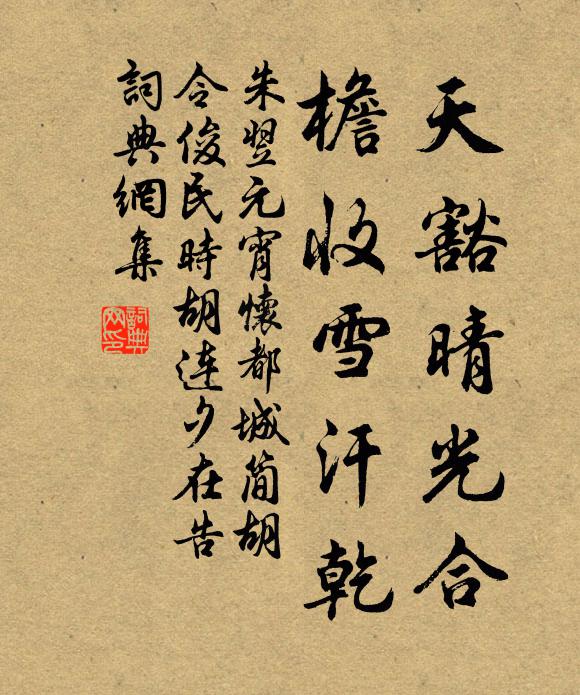 天豁晴光合
檐收雪汗乾
朱翌元宵懷都城簡胡
令俊民時胡连夕在告
詞典網集
詞典網印